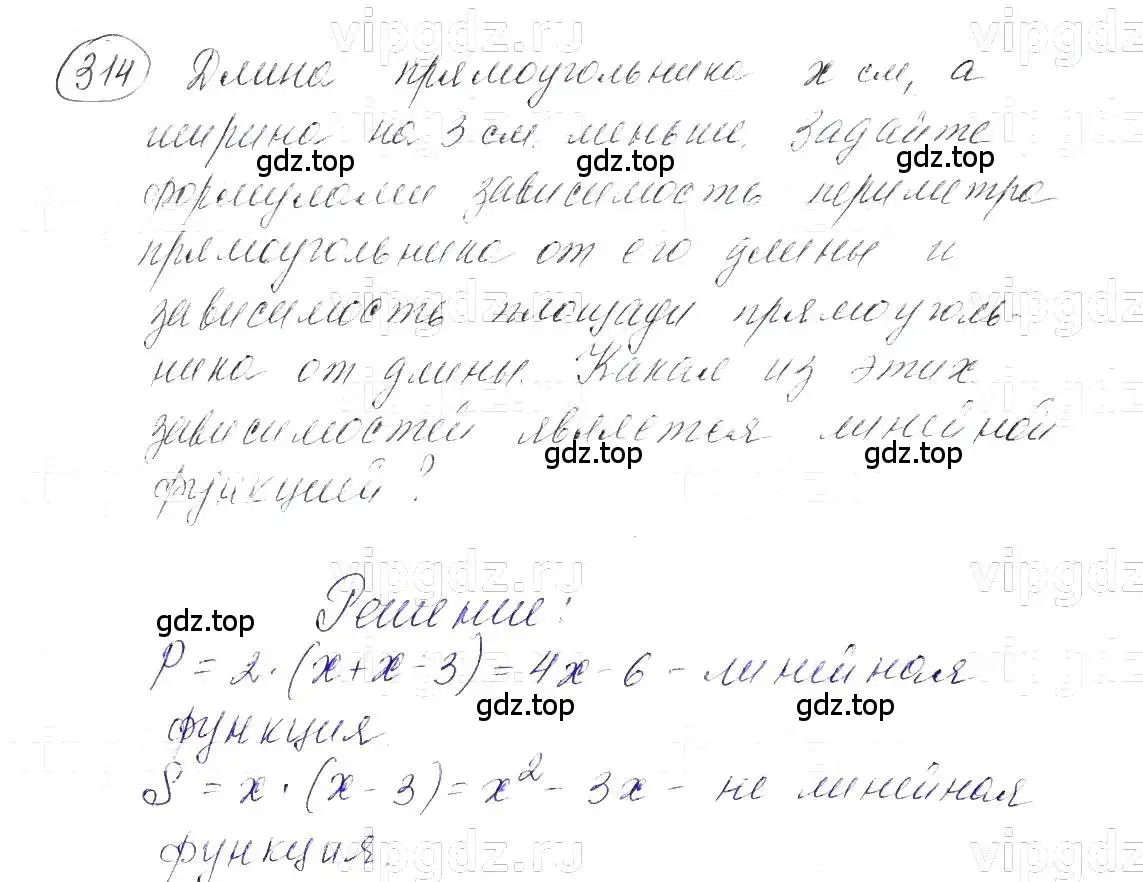 vipgdz.ru vipgdz
314 Длина прямоугольника x см, а
ширина на 3 см. меньше. Задайте
gdz.top gdz.top gdz.top
формулами зависимость периметра
прямоугольника от его длины и
зависимость площади прямоуголь-
ника от длины. Какая из этих
зависимостей является линейной
gdz.top gdz.top gdz.top
функцией?
vipgdz.ru vipgdz
Решение:
gdz.top
P = 2·(x+x-3) = 4x-6 - линейная
gdz.top gdz.top
функция
S = x·(x-3) = x² - 3x - не линейная
функция.
vipgdz.ru vipgdz